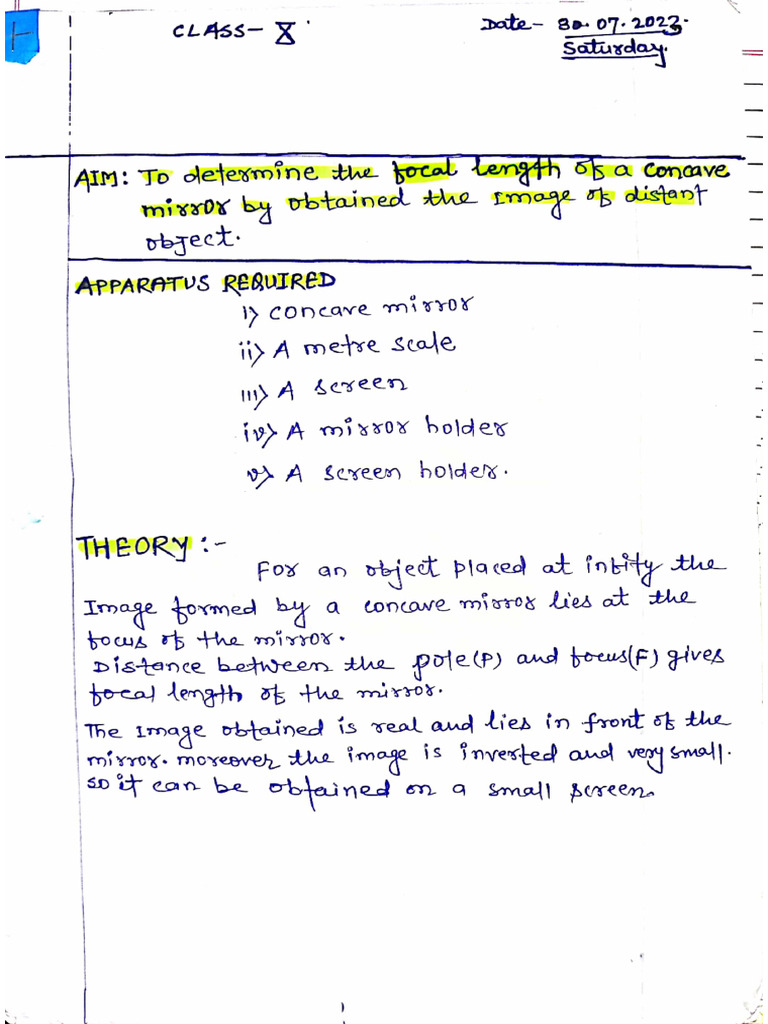 CLASS- X
Date- 30.07.2023.
Saturday.
AIM: To determine the focal length of a concave
mirror by obtained the image of distant
object.
APPARATUS REQUIRED
i) concave mirror
ii) A metre scale
iii) A screen
iv) A mirror holder
v) A screen holder.
THEORY :-
For an object placed at infity the
Image formed by a concave mirror lies at the
focus of the mirror.
Distance between the pole(P) and focus(F) gives
focal length of the mirror.
The Image obtained is real and lies in front of the
mirror. moreover the image is inverted and very small.
so it can be obtained on a small screen.